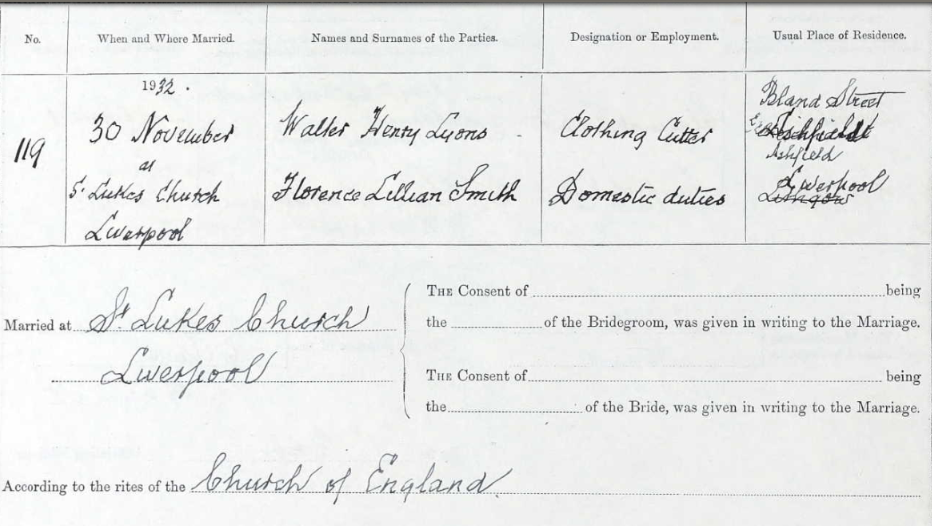 No.
When and Where Married.
Names and Surnames of the Parties.
Designation or Employment.
Usual Place of Residence.
1932.
119
30 November
at
St Lukes Church
Liverpool
Walter Henry Lyons
Florence Lillian Smith
Clothing Cutter
Domestic duties
Bland Street
Ashfield
Liverpool
Married at St. Lukes Church
Liverpool
THE Consent of being
the of the Bridegroom, was given in writing to the Marriage.
THE Consent of being
the of the Bride, was given in writing to the Marriage.
According to the rites of the Church of England